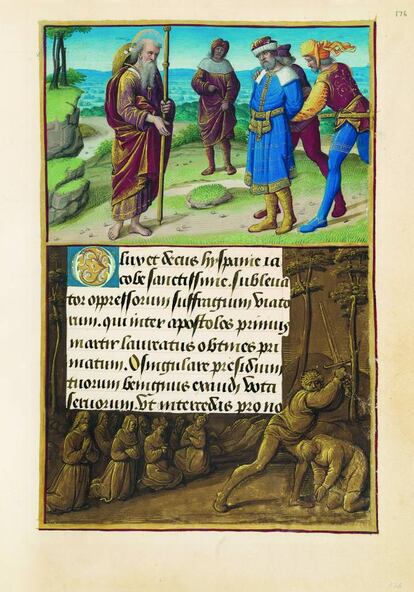 176
O lux et decus hyspanie ia
cobe sanctissime. subleua
tor oppressorum suffragium viato
rum. qui inter apostolos primus
martir laureatus obtines pri
matum. O singulare presidium
tuorum benignus exaudi vota
seruorum. Vt intercedis pro no